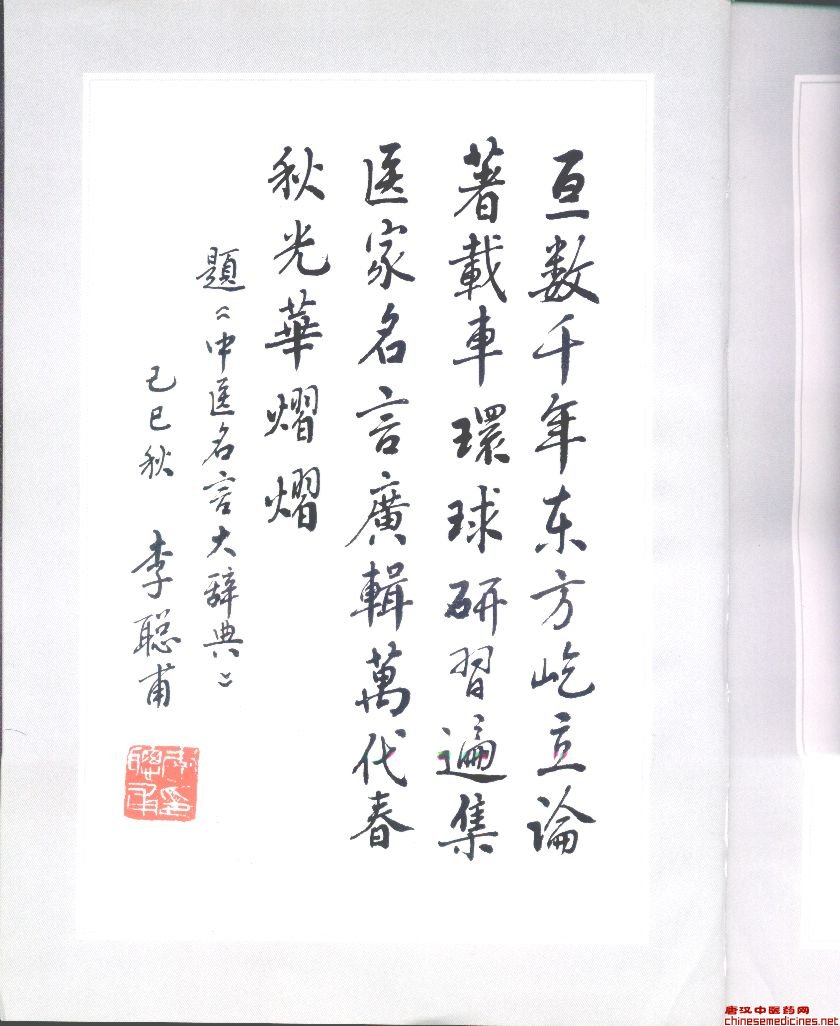 亘数千年东方屹立論
著載車環球研習遍集
医家名言廣輯萬代春
秋光華熠熠
題《中医名言大辞典》
己巳秋 李聪甫
唐汉中医药网
chinesemedicines.net